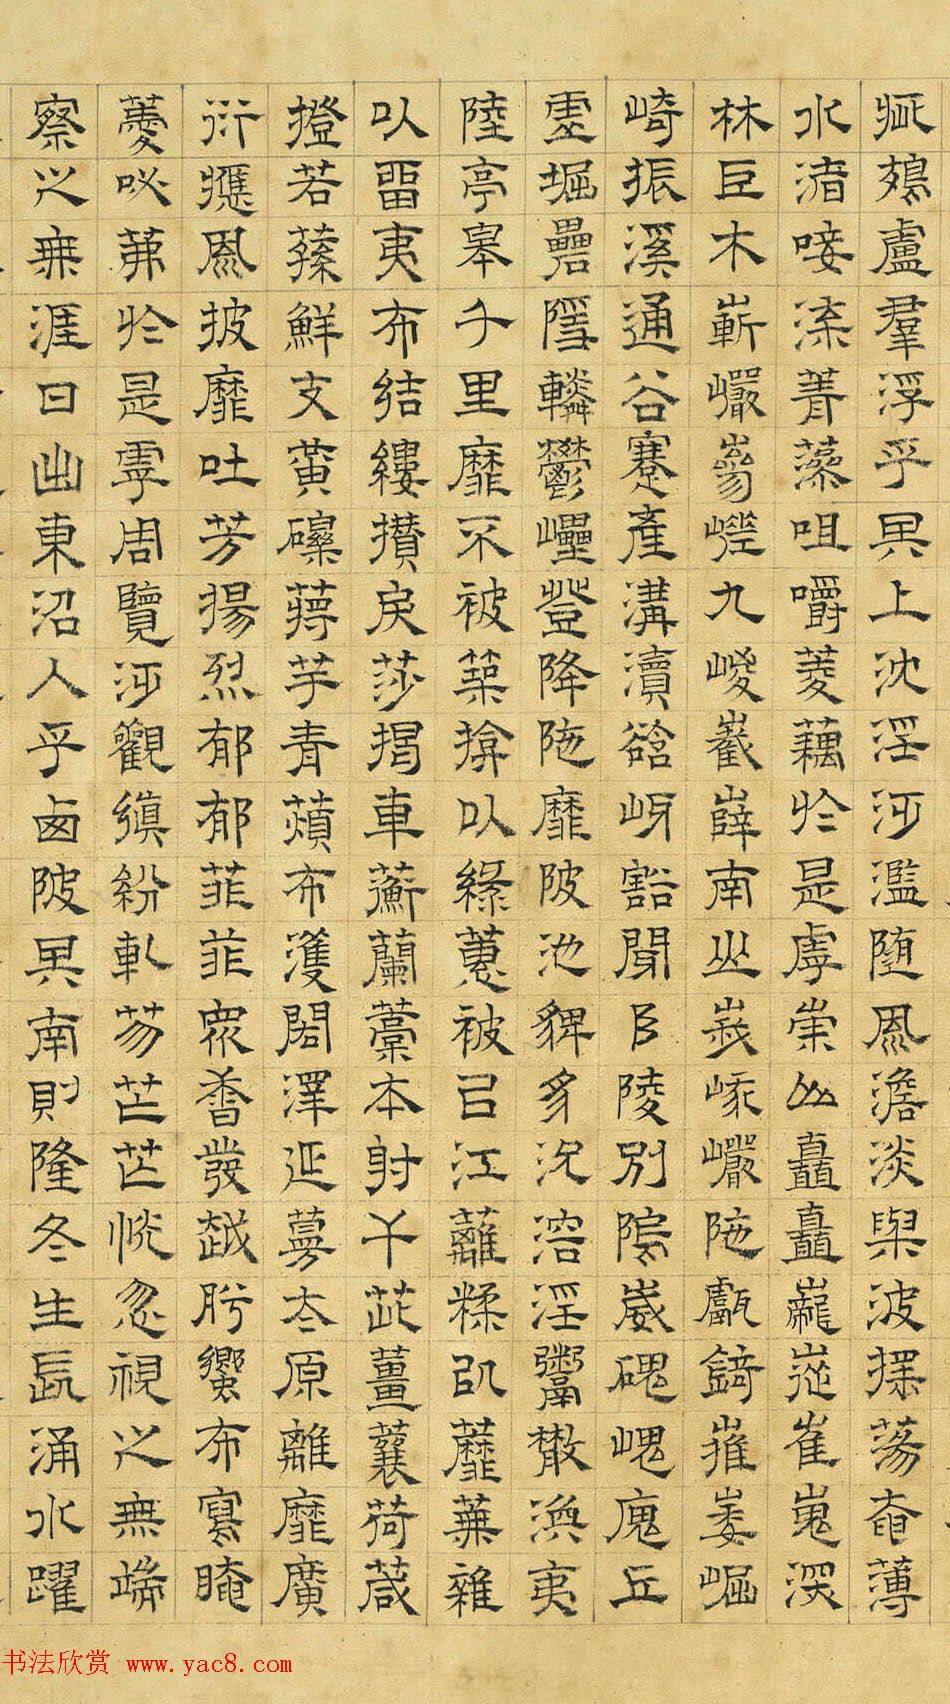 疵鵁盧羣浮乎其上沈淫汎濫随風澹淡與波搖蕩奄薄
水渚唼渿菁藻咀嚼菱藕於是虖崇山矗矗巃嵸崔嵬深
林巨木嶄巖嵾嵯九嵕嶻嶭南山峩峩巖陁甗錡嶊崣崛
崎振溪通谷蹇產溝瀆谽岈豁閜阜陵別隝崴磈嵔廆丘
虛堀礨隱轔鬱㠥登降陁靡陂池貏豸沇溶淫鬻散渙夷
陸亭皋千里靡不被築揜以綠蕙被以江蘺糅以蘪蕪雜
以留夷布結縷攢戾莎揭車蘅蘭稾本射干茈薑蘘荷葴
橙若蓀鮮支黃礫蔣芧青薠布濩閎澤延蔓太原離靡廣
衍應風披靡吐芳揚烈郁郁菲菲衆香發越肸蠁布寫晻
薆咇茀於是虖周覽汎觀縝紛軋芴芒芒恍忽視之無端
察之無涯日出東沼入乎西陂其南則隆冬生長涌水躍
书法欣赏 www.yac8.com